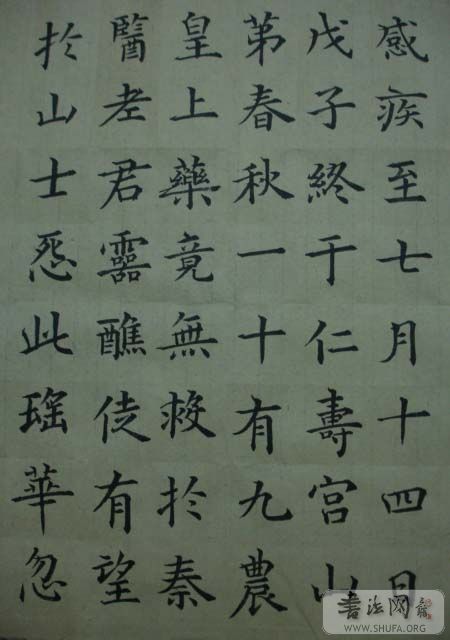 感疾至七月十四日
戊子終于仁壽宮山
苐春秋一十有九農
皇上藥竟無救扵秦
醫老君靈醮徒有望
扵山士怨此瑤華忽
書法网
WWW.SHUFA.ORG